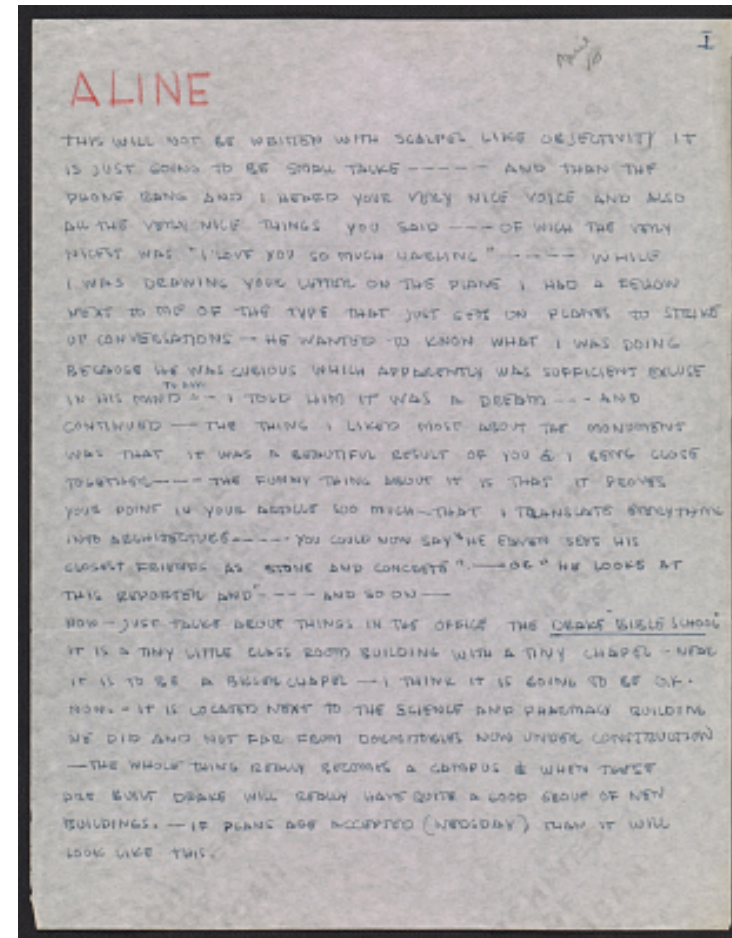 I
ALINE
THIS WILL NOT BE WRITTEN WITH SCALPEL LIKE OBJECTIVITY IT
IS JUST GOING TO BE SMALL TALKE ------ AND THAN THE
PHONE RANG AND I HEARD YOUR VERY NICE VOICE AND ALSO
ALL THE VERY NICE THINGS YOU SAID --- OF WICH THE VERY
NICEST WAS "I LOVE YOU SO MUCH DARLING" ----- WHILE
I WAS DRAWING YOUR LETTER ON THE PLANE I HAD A FELLOW
NEXT TO ME OF THE TYPE THAT JUST GETS ON PLANES TO STRIKE
UP CONVERSATIONS — HE WANTED TO KNOW WHAT I WAS DOING
BECAUSE HE WAS CURIOUS WHICH APPARENTLY WAS SUFFICIENT EXCUSE
IN HIS MIND -- I TOLD HIM IT WAS A DREAM --- AND
CONTINUED — THE THING I LIKED MOST ABOUT THE MONUMENT
WAS THAT IT WAS A BEAUTIFUL RESULT OF YOU & I BEING CLOSE
TOGETHER ---- THE FUNNY THING ABOUT IT IS THAT IT PROVES
YOUR POINT IN YOUR ARTICLE SOO MUCH — THAT I TRANSLATE EVERYTHING
INTO ARCHITECTURE ----- YOU COULD NOW SAY "HE EAVEN SEES HIS
CLOSEST FRIENDS AS STONE AND CONCRETE". — OR "HE LOOKS AT
THIS REPORTER AND" ---- AND SO ON —
NOW — JUST TALKE ABOUT THINGS IN THE OFFICE THE DRAKE "BIBLE SCHOOL"
IT IS A TINY LITTLE CLASS ROOM BUILDING WITH A TINY CHAPEL - NEAR
IT IS TO BE A BIGGER CHAPEL — I THINK IT IS GOING TO BE O.K.
NOW. - IT IS LOCATED NEXT TO THE SCIENCE AND PHARMACY BUILDING
WE DID AND NOT FAR FROM DORMITORIES NOW UNDER CONSTRUCTION
— THE WHOLE THING REALLY BECOMES A CAMPUS & WHEN THESE
ARE BUILT DRAKE WILL REALLY HAVE QUITE A GOOD GROUP OF NEW
BUILDINGS. — IF PLANS ARE ACCEPTED (WEDSDAY) THAN IT WILL
LOOK LIKE THIS.